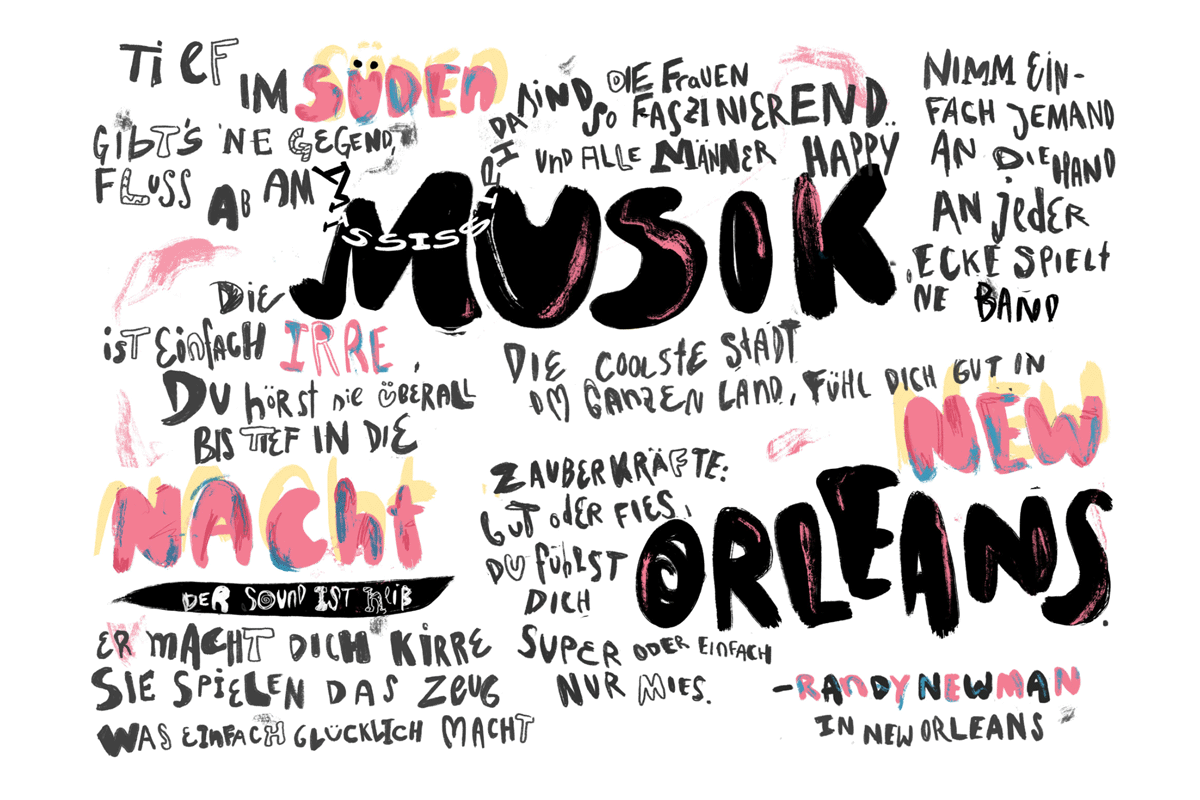 TiEF
IM SÜDEN
GIBT'S 'NE GEGEND,
FLUSS AB AM
AM MISSISSIPPI
DA SIND DIE FRAUEN
SO FASZINIEREND..
UND ALLE MÄNNER HAPPY
NIMM EIN-
FACH JEMAND
AN DIE HAND
AN JEDER
ECKE SPIELT
'NE BAND
DIE MUSIK
IST EINFACH IRRE,
DU HÖRST DIE ÜBERALL
BIS TIEF IN DIE
NACHT
DER SOUND IST HEIß
ER MACHT DICH KIRRE
SIE SPIELEN DAS ZEUG
WAS EINFACH GLÜCKLICH MACHT
DIE COOLSTE STADT
IM GANZEN LAND, FÜHL DICH GUT IN
NEW
ORLEANS.
ZAUBERKRÄFTE:
GUT ODER FIES,
DU FÜHLST
DICH
SUPER ODER EINFACH
NUR MIES.
-RANDY NEWMAN
IN NEW ORLEANS